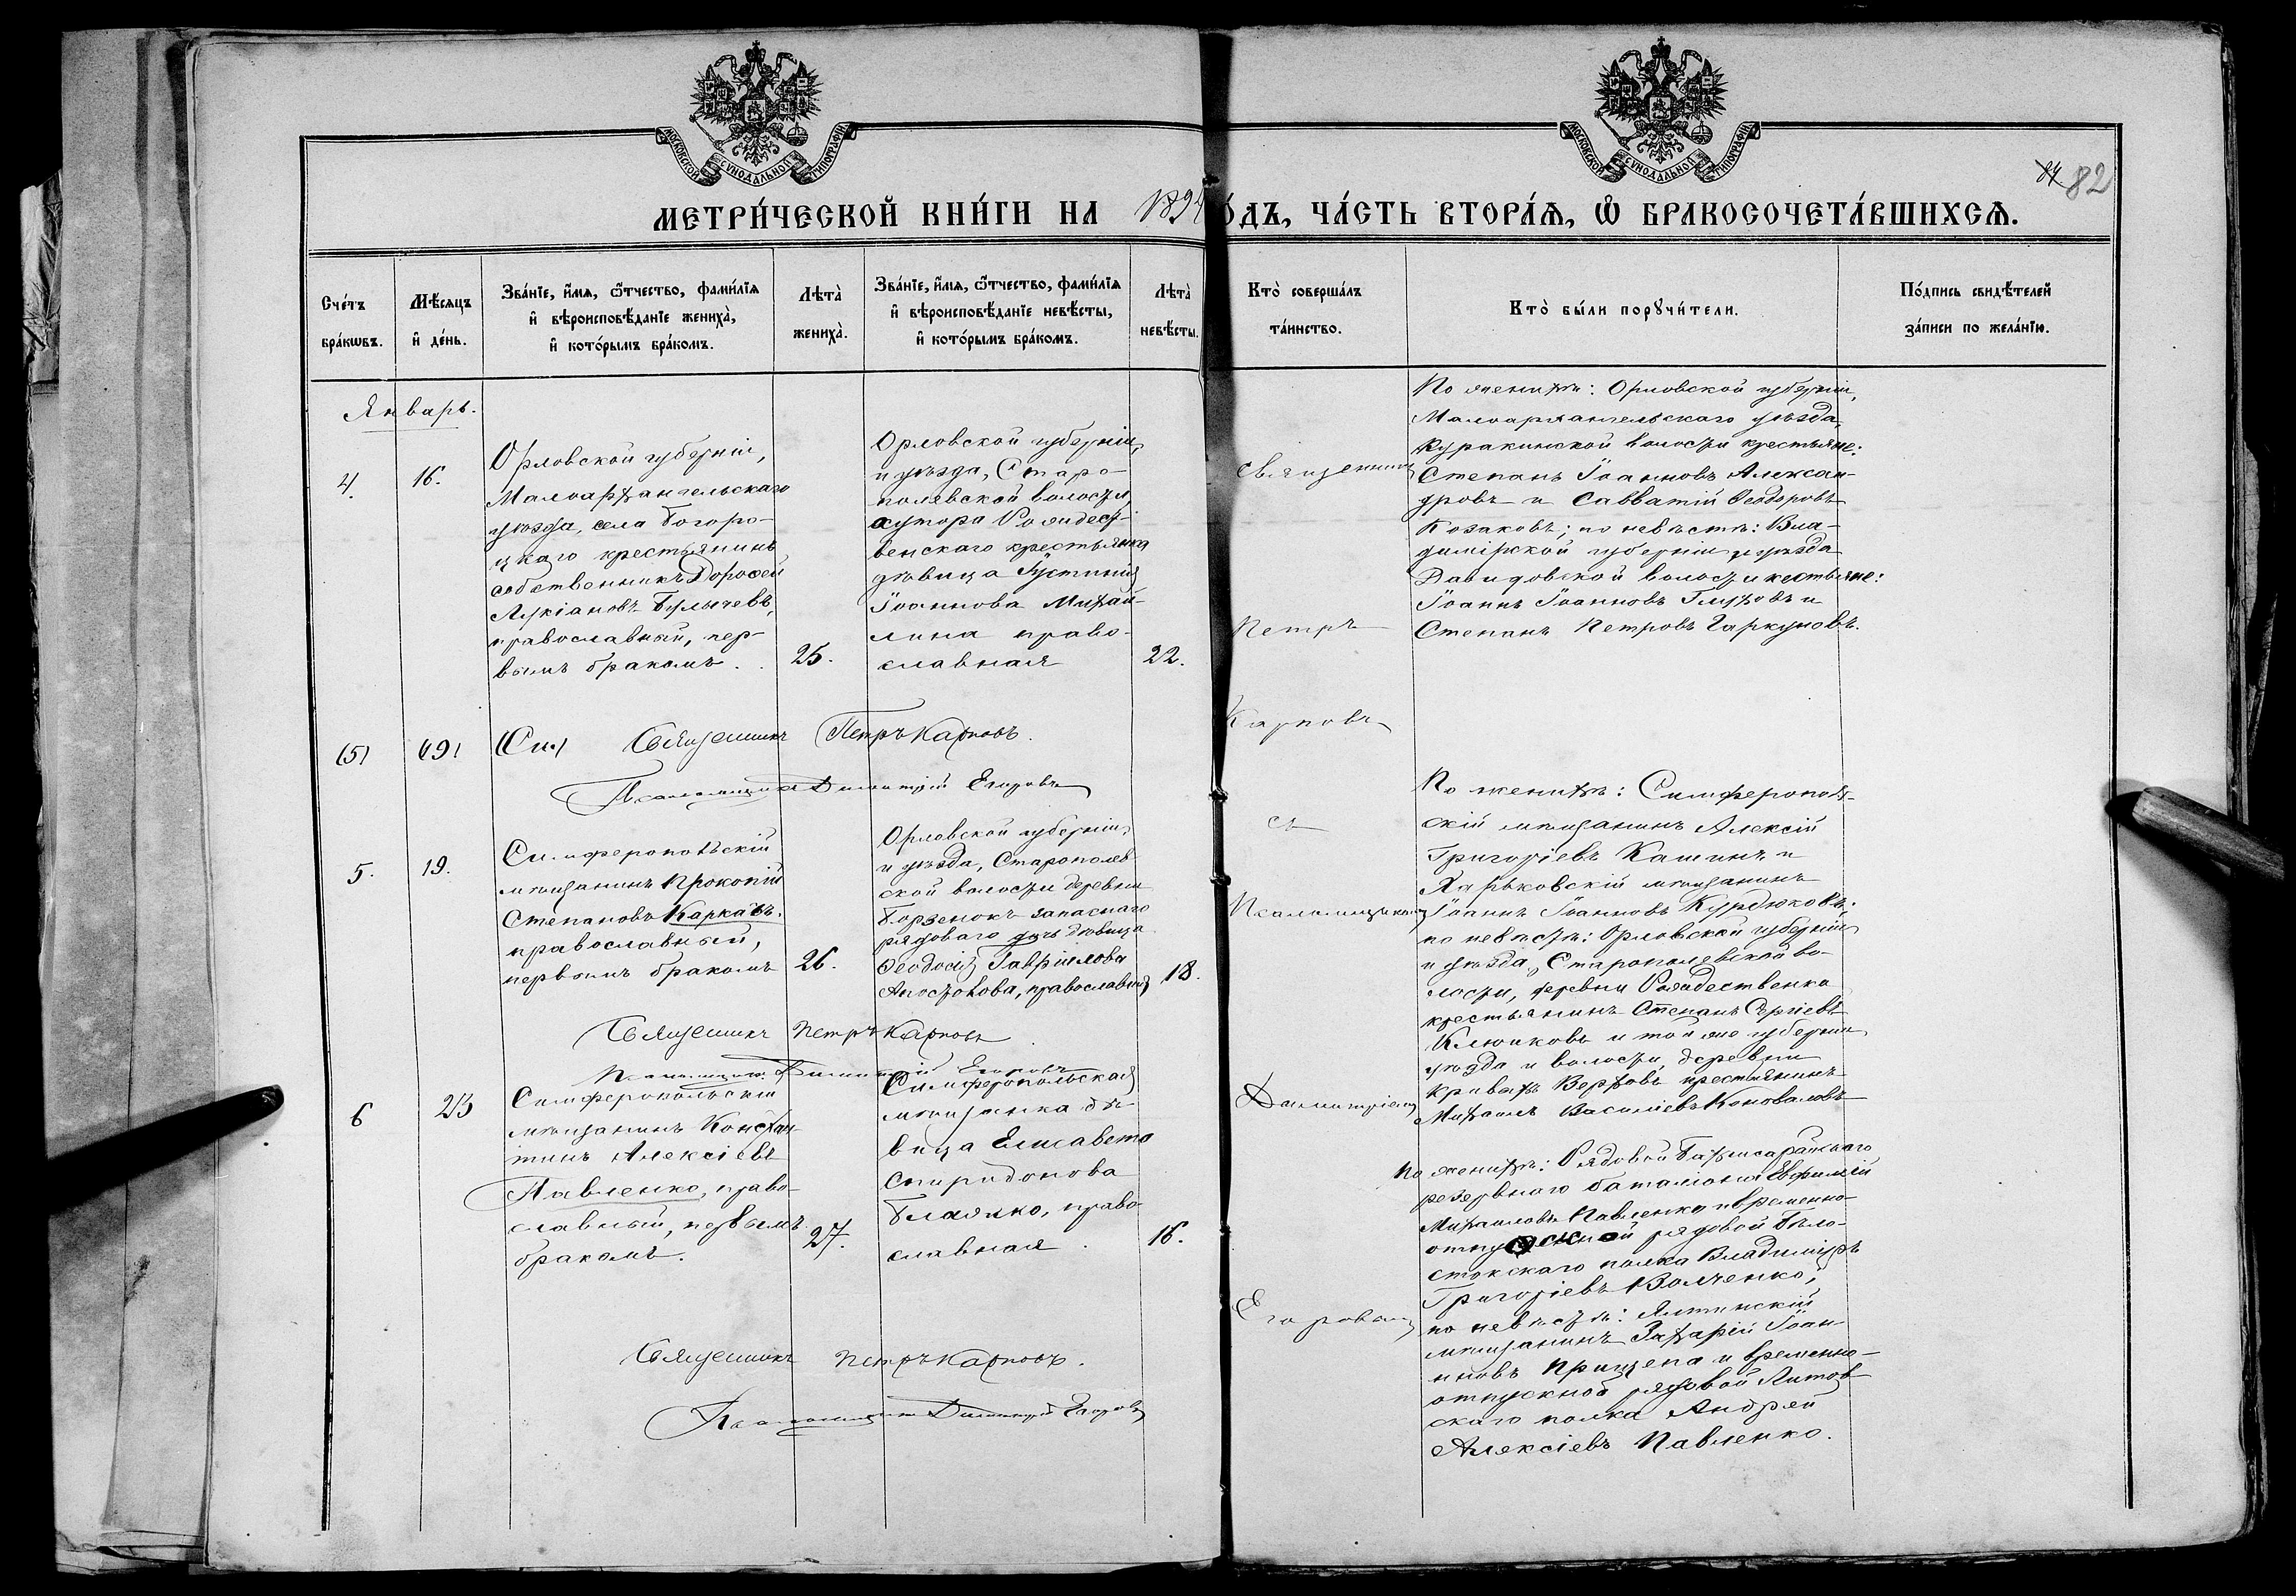 МОСКОВСКОЙ СУНОДАЛЬНОЙ ТИПОГРАФІИ
МОСКОВСКОЙ СУНОДАЛЬНОЙ ТИПОГРАФІИ
84 82
МЕТРИ́ЧЕСКОЙ КНИ́ГИ НА 1894
О́ДЪ, ЧА́СТЬ ВТОРА́Ѧ, Ѽ БРАКОСОЧЕТА́ВШИХСѦ.
Сче́тъ
бра́кѡвъ.
Мѣ́сяцъ
и҆ де́нь.
Зва́нїе, и҆́мѧ, ѻ҆́тчество, фами́лїѧ
и҆ вѣроисповѣ́данїе жениха̀,
и҆ кото́рымъ бра́комъ.
Лѣта̀
жениха̀.
Зва́нїе, и҆́мѧ, ѻ҆́тчество, фами́лїѧ
и҆ вѣроисповѣ́данїе невѣ́сты,
и҆ кото́рымъ бра́комъ.
Лѣта̀
невѣ́сты.
Кто̀ соверша́лъ
та́инство.
Кто̀ бы́ли порꙋчи́тели.
По́дпись свидѣ́телей
за́писи по жела́нїю.
Январь.
4.
16.
Орловской губерніи,
Малоархангельскаго
уѣзда, села Богоро-
цкаго крестьянинъ
собственникъ Дорофей
Лукіановъ Булычевъ,
православный, пер-
вымъ бракомъ.
25.
Орловской губерніи,
и уѣзда, Старо-
полевской волости,
хутора Рождест-
венскаго крестьянка
дѣвица Іустинія
Іоаннова Михай-
лина право-
славная
22.
Священникъ
Петръ
Карповъ
съ
Псаломщикомъ
Димитріемъ
Егоровымъ
По женихѣ: Орловской губерніи,
Малоархангельскаго уѣзда,
Куракинской волости крестьяне:
Степанъ Іоанновъ Алексан-
дровъ и Савватій Ѳеодоровъ
Козаковъ; по невѣстѣ: Вла-
димірской губерніи и уѣзда
Давидовской волости кестьяне:
Іоаннъ Іоанновъ Глуховъ и
Степанъ Петровъ Гаркуновъ.
(5)
(19)
(Сим)
Священникъ Петръ Карповъ.
Псаломщикъ Димитрій Егоровъ
5.
19.
Симферопольскій
мѣщанинъ Прокопій
Степановъ Каркачъ.
православный,
первымъ бракомъ
26.
Орловской губерніи,
и уѣзда, Старополев-
ской волости деревни
Борзенокъ запаснаго
рядоваго дочь дѣвица
Ѳеодосія Гавриилова
Апостолова, православная
18.
По женихѣ: Симферополь-
скій мѣщанинъ Алексій
Григоріевъ Кашинъ и
Харьковскій мѣщанинъ
Іоаннъ Іоанновъ Курдюковъ;
по невѣстѣ: Орловской губерніи
и уѣзда, Старополевской во-
лости, деревни Рождественка
крестьянинъ Степанъ Сергіевъ
Клюиковъ и той же губерніи
уѣзда и волости, деревни
Кривыхъ Верховъ крестьянинъ
Михаилъ Василіевъ Коноваловъ
Священникъ Петръ Карповъ
Псаломщикъ Димитрій Егоровъ
6
23
Симферопольскій
мѣщанинъ Констан-
тинъ Алексіевъ
Павленко, право-
славный, первымъ
бракомъ.
27.
Симферопольская
мѣщанка дѣ-
вица Елисавета
Спиридонова
Блажко, право-
славная
16.
По женихѣ: Рядовой Бахчисарайскаго
резервнаго баталіона Евфимій
Михаиловъ Павленко и временно-
отпускной рядовой Бѣло-
стокскаго полка Владиміръ
Григоріевъ Волченко;
по невѣстѣ: Ялтинскій
мѣщанинъ Захарій Іоан-
новъ Прищепа и временно-
отпускной рядовой Литов-
скаго полка Андрей
Алексіевъ Павленко.
Священникъ Петръ Карповъ.
Псаломщикъ Димитрій Егоровъ